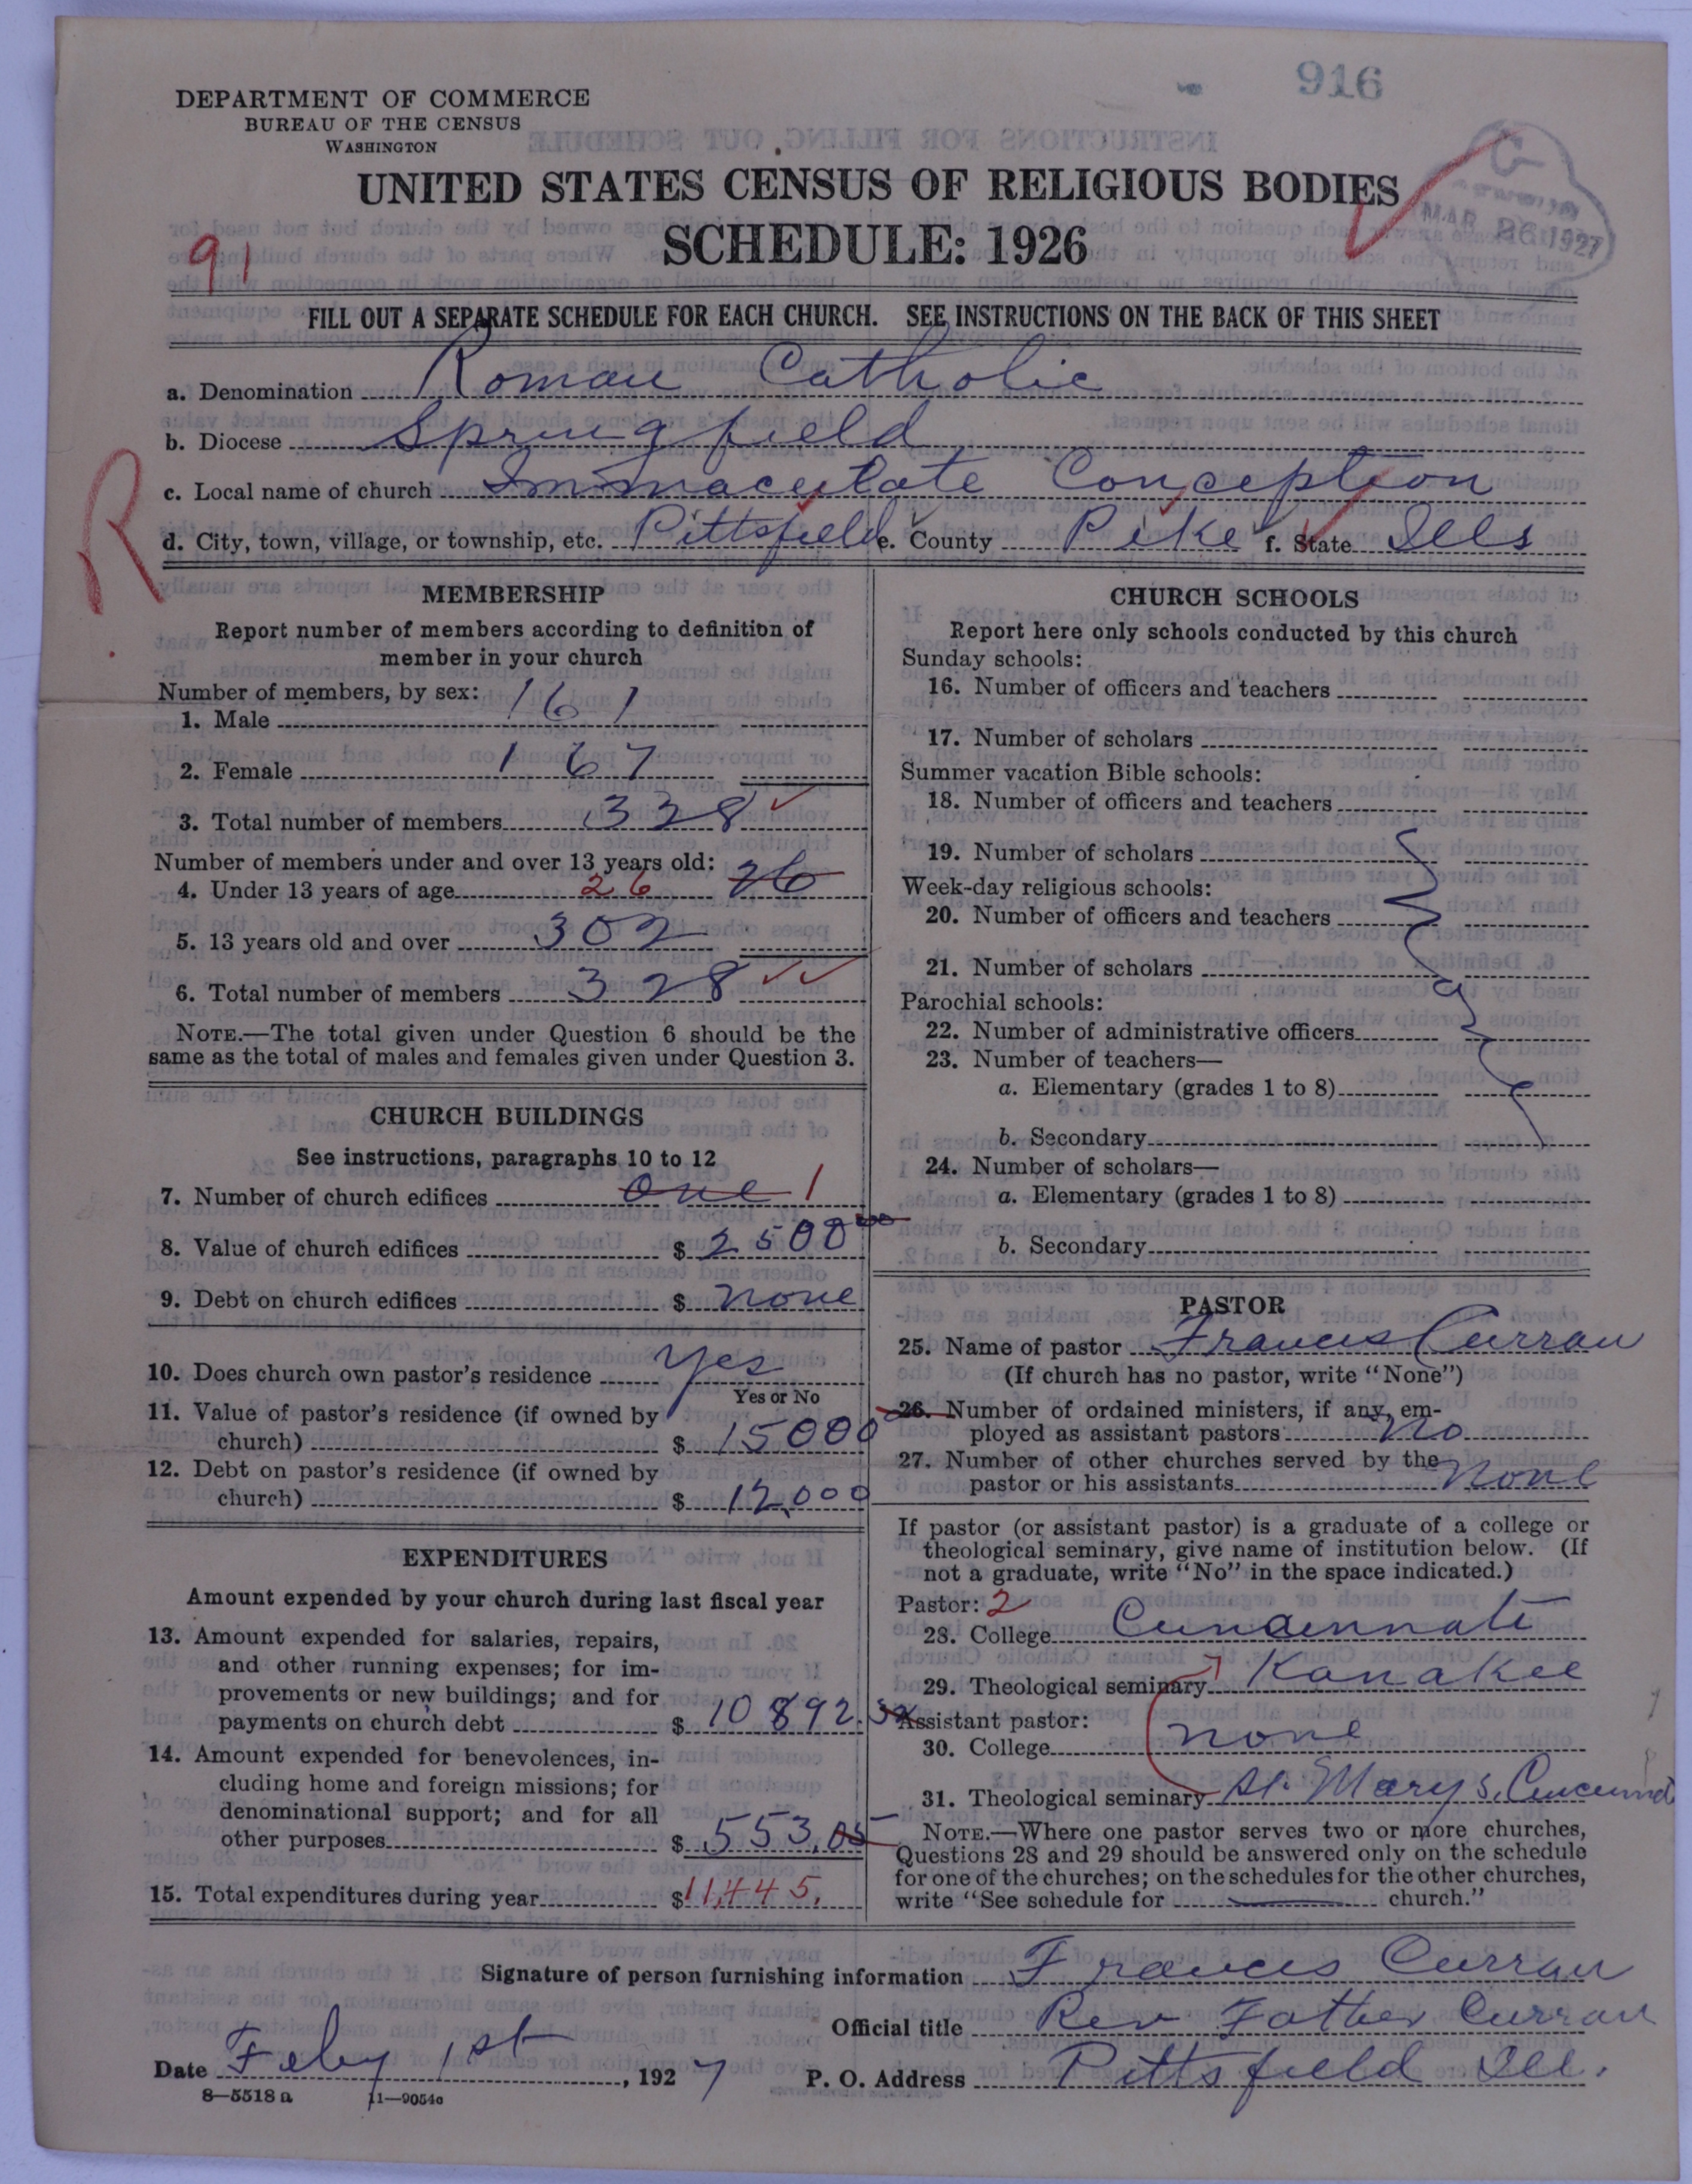 916
DEPARTMENT OF COMMERCE
BUREAU OF THE CENSUS
WASHINGTON
UNITED STATES CENSUS OF RELIGIOUS BODIES
SCHEDULE: 1926
MAR 26 1927
91
FILL OUT A SEPARATE SCHEDULE FOR EACH CHURCH. SEE INSTRUCTIONS ON THE BACK OF THIS SHEET
a. Denomination Roman Catholic
b. Diocese Springfield
c. Local name of church Immaculate Conception
R
d. City, town, village, or township, etc. Pittsfield e. County Pike f. State Ills
MEMBERSHIP
Report number of members according to definition of
member in your church
Number of members, by sex:
1. Male 161
2. Female 167
3. Total number of members 328
Number of members under and over 13 years old:
4. Under 13 years of age 26 26
5. 13 years old and over 302
6. Total number of members 328
NOTE.—The total given under Question 6 should be the
same as the total of males and females given under Question 3.
CHURCH BUILDINGS
See instructions, paragraphs 10 to 12
7. Number of church edifices one 1
8. Value of church edifices $ 2500 00
9. Debt on church edifices $ none
10. Does church own pastor's residence yes
Yes or No
11. Value of pastor's residence (if owned by
church) $ 15000
12. Debt on pastor's residence (if owned by
church) $ 12,000
EXPENDITURES
Amount expended by your church during last fiscal year
13. Amount expended for salaries, repairs,
and other running expenses; for im-
provements or new buildings; and for
payments on church debt $ 10892.32
14. Amount expended for benevolences, in-
cluding home and foreign missions; for
denominational support; and for all
other purposes $ 553,05
15. Total expenditures during year $ 11,445.
CHURCH SCHOOLS
Report here only schools conducted by this church
Sunday schools:
16. Number of officers and teachers
17. Number of scholars
Summer vacation Bible schools:
18. Number of officers and teachers
19. Number of scholars
Week-day religious schools:
20. Number of officers and teachers
21. Number of scholars
Parochial schools:
22. Number of administrative officers
23. Number of teachers—
a. Elementary (grades 1 to 8)
b. Secondary
24. Number of scholars—
a. Elementary (grades 1 to 8)
b. Secondary
PASTOR
25. Name of pastor Francis Curran
(If church has no pastor, write "None")
26. Number of ordained ministers, if any, em-
ployed as assistant pastors no
27. Number of other churches served by the
pastor or his assistants none
If pastor (or assistant pastor) is a graduate of a college or
theological seminary, give name of institution below. (If
not a graduate, write "No" in the space indicated.)
Pastor: 2
28. College Cincinnati
29. Theological seminary Kanakee
Assistant pastor:
30. College none
31. Theological seminary St. Mary's, Cincinnati
NOTE.—Where one pastor serves two or more churches,
Questions 28 and 29 should be answered only on the schedule
for one of the churches; on the schedules for the other churches,
write "See schedule for church."
Signature of person furnishing information Francis Curran
Official title Rev Father Curran
Date Feby 1st, 1927 P. O. Address Pittsfield Ill.
8—5518 a 11—9054a